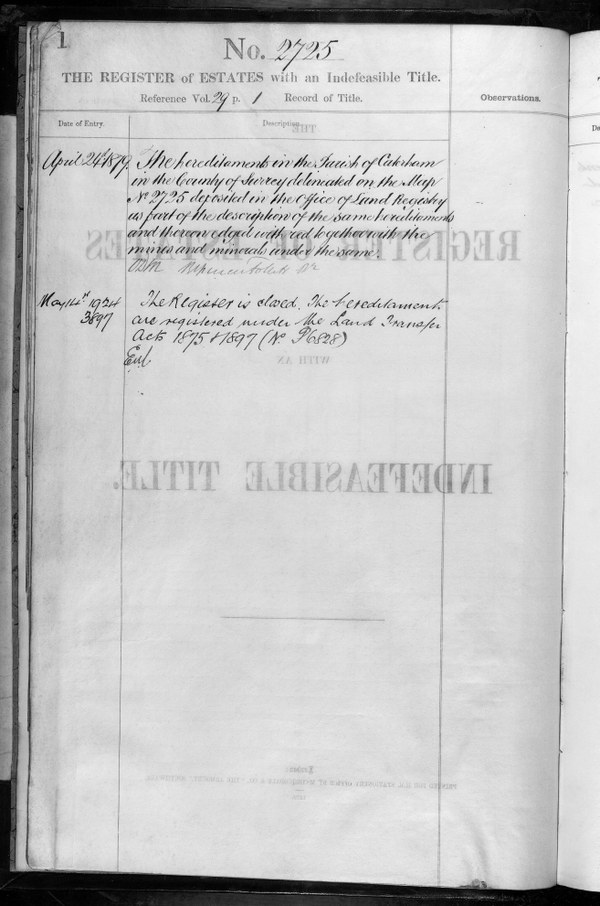 1
No. 2725
THE REGISTER of ESTATES with an Indefeasible Title.
Reference Vol. 29 p. 1 Record of Title.
Observations.
Date of Entry.
Description.
April 24th 1879. The hereditaments in the Parish of Caterham
in the County of Surrey delineated on the Map
No 2725 deposited in the Office of Land Registry
as part of the description of the same hereditaments
and thereon edged with red together with the
mines and minerals under the same.
May 14th 1924 The Register is closed. The hereditaments
3897 are registered under the Land Transfer
Acts 1875 & 1897 (No P6828)
THE
REGISTER OF ESTATES
WITH AN
INDEFEASIBLE TITLE.
London: